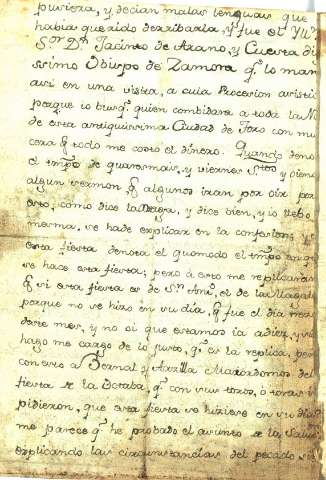 pusiera, y decian malas lenguas que
habia querido derribarla, y fue el Yll.
S.or D.n Jacinto de Arano, y Cuesta di
simo Obispo de Zamora q.e lo man
asi en una visita, a cuia Procesion asistio
porque io busq.e quien combidara a toda la N
de esta antiquissima Ciudad de Toro con mu
cera q.e todo me costo el dinero. Quando deno
el tmpo de quaresmas, y viernes S.tos y viene
algun sermon q.e algunos iran por oir per
esto, como dice la y dice bien, y io debo
mesma, se ha de explicar en la
esta fiesta denota el quomodo el tmpo
se hace esta fiesta; pero à esto me replicaran
q.e si esta fiesta es de S.n Ant.o, el de la
porque no se hizo en su dia, q.e fue el dia
deste mes, y no oi que estamos à diez, y
hago me cargo de lo justo, q.e es la replica, per
con eso a Bernal y Maiordomos del
fiesta de la Octaba, q.e con sus toros, o
pidieron, que esta fiesta se hiziese en su dia
me parece q.e he probado el asunto de la Salu
explicando las circunstancias del pecado